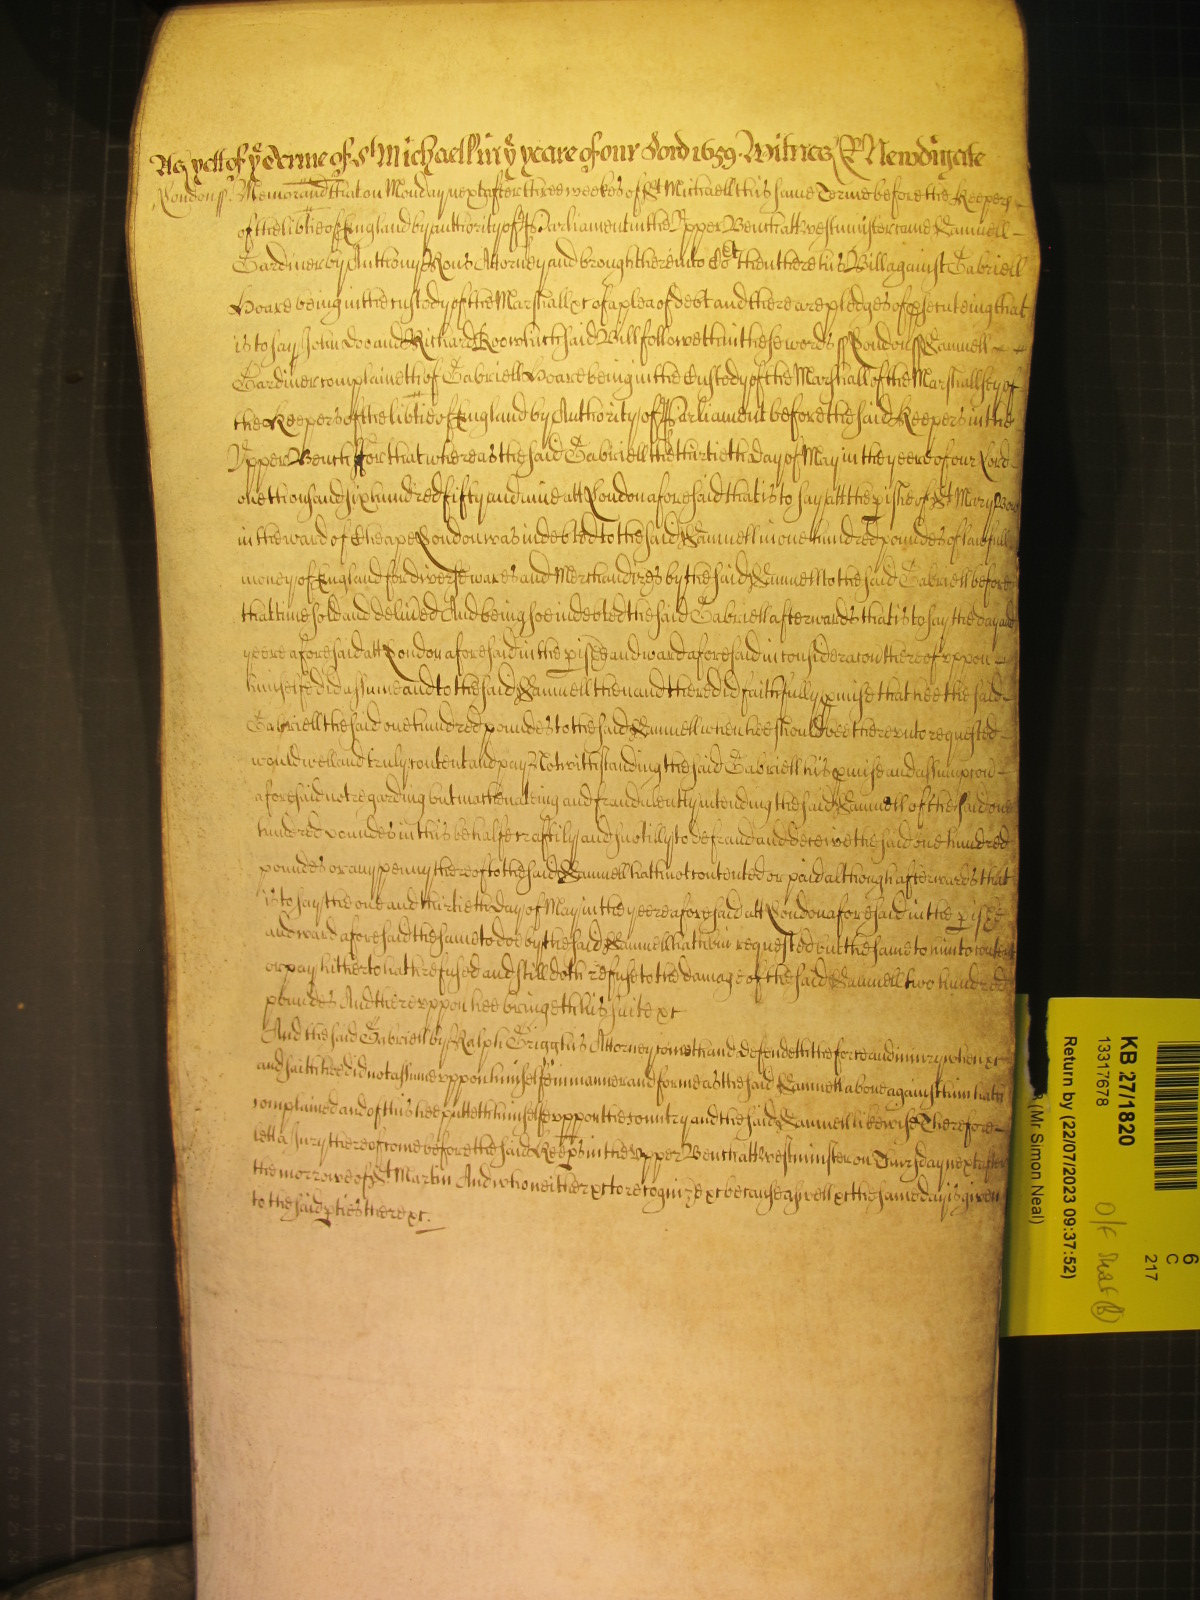 As yett of ye Terme of St Michaell in ye yeare of our Lord 1659. Witnes R Newdigate
London ss. Memorand that on Monday next after three weekes of St Michaell this same Terme before the Keepers
of the libtie of England by authority of Parliament in the Upper Bench att Westminster came Samuell
Gardiner by Anthony Rous Attorney and brought here into Cot then there his Bill against Gabriell
Hoare being in the custody of the Marshall xc of a plea of debt and there are pledges of psecuteing that
is to say John Doo and Richard Roo which said Bill followeth in these words ss London ss Samuell
Gardiner complaineth of Gabriell Hoare being in the Custody of the Marshall of the Marshallsey of
the Keepers of the libtie of England by Authority of Parliament before the said Keepers in the
Upper Bench For that whereas the said Gabriell the thirtieth day of May in the yeere of our Lord
one thousand six hundred fifty and nine att London aforesaid that is to say att the pishe of St Mary Bow
in the ward of Cheape London was indebted to the said Samuell in one hundred poundes of lawfull
money of England for diverse wares and Merchandizes by the said Samuell to the said Gabriell before
that time sold and delived And being soe indebted the said Gabriell afterwards that is to say the day and
yeere aforesaid att London aforesaid in the pishe and ward aforesaid in consideracon thereof uppon
himselfe did assume and to the said Samuell then and there did faithfully pmise that hee the said
Gabriell the said one hundred poundes to the said Samuell when hee should bee thereunto requested
would well and truly content and pay Notwithstanding the said Gabriell his pmise and assumpcon
aforesaid not regarding but machinateing and fraudulently intending the said Samuell of the said one
hundred poundes in this behalfe craftily and subtilly to defraud and deceive the said one hundred
poundes or any penny thereof to the said Samuell hath not contented or paid although afterwards that
is to say the one and thirtieth day of May in the yeere aforesaid att London aforesaid in the pishe
and ward aforesaid the same to doe by the said Samuell hath bin requested but the same to him to content
or pay hitherto hath refused and still doth refuse to the damage of the said Samuell two hundred
poundes And thereuppon hee bringeth his suite xc
And the said Gabriell by Ralph Griggs his Attorney cometh and defendeth the force and iniury when xc
and saith hee did not assume uppon himselfe in manner and forme as the said Samuell above against him hath
complained and of this hee putteth himselfe uppon the country and the said Samuell likewise Therefore
lett a Jury thereof come before the said Keeps in the upper Bench att Westminster on Thursday next after
the morrowe of St Martin And who neither xc to recognize xc because aswell xc the same day is given
to the said pties there xc.
KB 27/1820
13317678
Return by (22/07/2023 09:37:52)
(Mr Simon Neal)
6
C
217